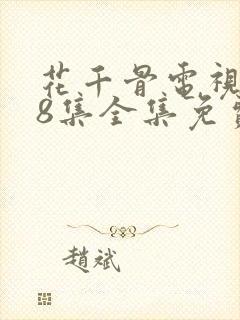 花千骨電視
8集全集免
趙斌